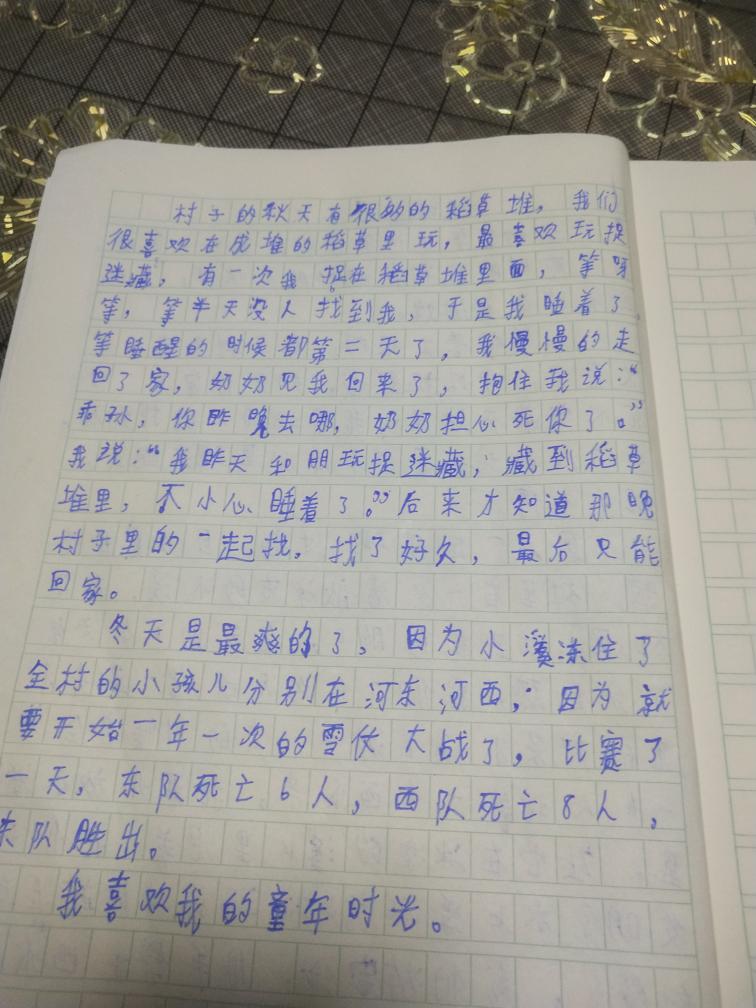 村子的秋天有很多的稻草堆，我们
很喜欢在成堆的稻草里玩，最喜欢玩捉
迷藏，有一次我捉在稻草堆里面，等呀
等，等半天没人找到我，于是我睡着了，
等睡醒的时候都第二天了，我慢慢的走
回了家，奶奶见我回来了，抱住我说：“
乖孙，你昨晚去哪，奶奶担心死你了。”
我说：“我昨天和朋玩捉迷藏，藏到稻草
堆里，不小心睡着了。”后来才知道那晚
村子里的一起找，找了好久，最后只能
回家。
冬天是最爽的了，因为小溪冻住了
全村的小孩儿分别在河东河西，因为就
要开始一年一次的雪仗大战了，比赛了
一天，东队死亡6人，西队死亡8人，
东队胜出。
我喜欢我的童年时光。